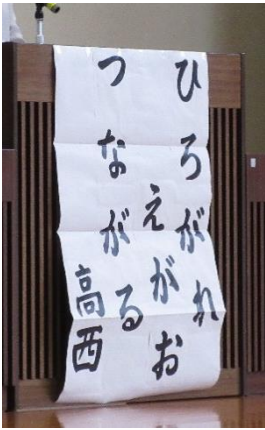 ひろがれ
えがお
つながる
高西